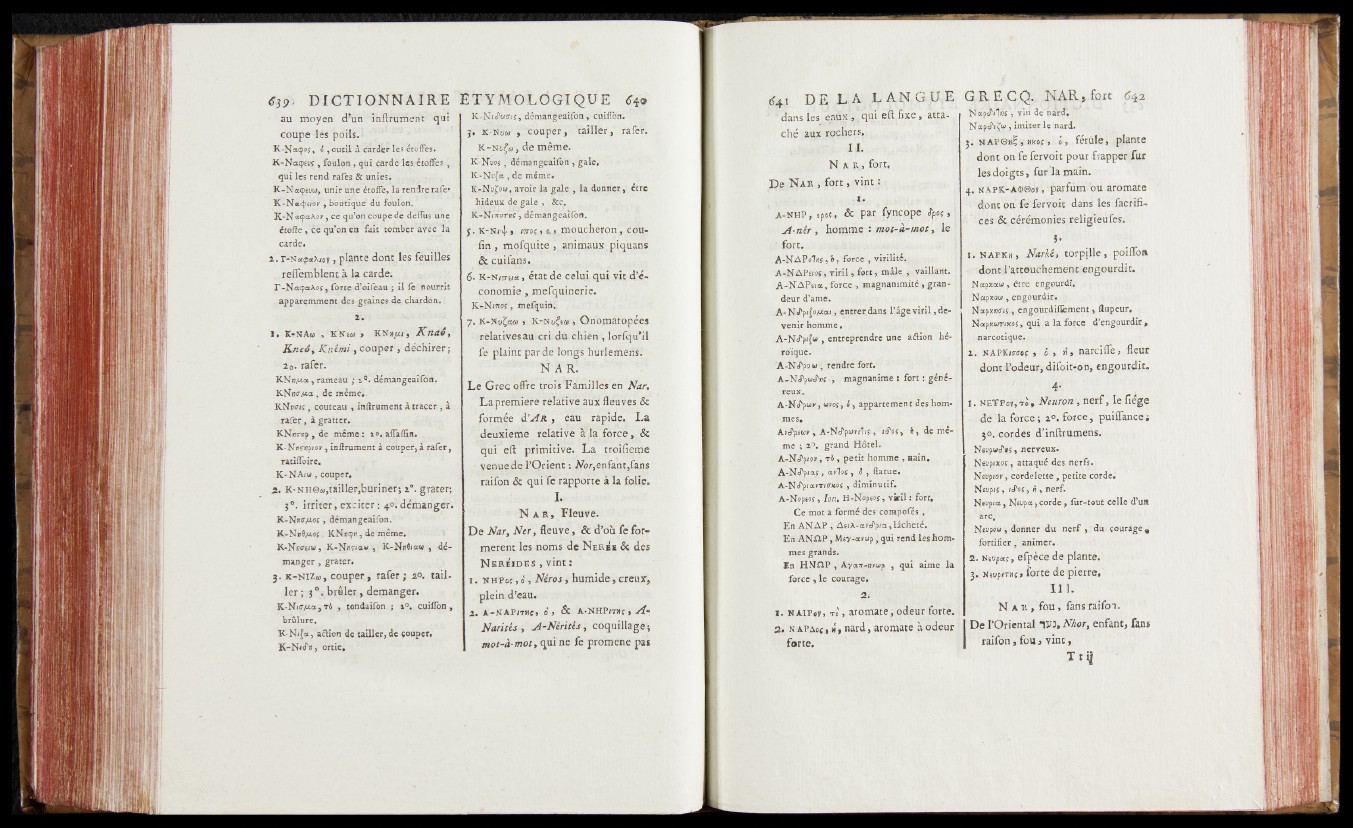 639. DICTIONNAIRE
au moyen d'un inſtrument qui
coupe les poils.
K-Ναφος, ὁ, outil à carder les étoffes.
K-Ναφευς, foulon, qui carde les étoffes,
qui les rend raſes & unies.
K-Ναφευω, unir une étoffe, la rendre raſe.
K-Ναφειον, boutique du foulon.
K-Ναφαλον, ce qu'on coupe de deſſus une
étoffe, ce qu'on en fait tomber avec la
carde.
2. Γ-Ναφαλιον, plante dont les feuilles
reſſemblent à la carde.
Γ-Ναφαλος, ſorte d'oiſeau; il ſe nourrit
apparemment des graines de chardon.
2.
1. K-NAω, KNεω, KNημι, Knaó,
Kneó, Knémi, couper, déchirer;
2º. raſer.
KNημα, rameau; 2º. démangeaiſon.
KNησμα, de même.
KNησις, couteau, inſtrument à tracer, à
raſer, à gratter.
KNηστηρ, de même: 2º. aſſaſſin.
K-Nηστηριον, inſtrument à couper, à raſer,
ratiſſoire.
K-NAιω, couper.
2. K-NHΘω, tailler, buriner; 2º. grater;
3º. irriter, exciter: 4º. démanger.
K-Nησμος, démangeaiſon.
K-Nηθμος, KNηφη, de même.
K-Nησειω, K-Nηστιαω, K-Nηθιαω, dé-
manger, grater.
3. K-NIZω, couper, raſer; 2º. tail-
ler; 3º. brûler, démanger.
K-Nισμα, τὸ, tondaiſon; 2º. cuiſſon,
brûlure.
K-Nιξα, action de tailler, de couper.
K-Nιδη, ortie.
ÉTYMOLOGIQUE 640
K-Nιδωσις, démangeaiſon, cuiſſon.
3. K-Nυω, couper, tailler, raſer.
K-Nυξω, de même.
K-Nυος, démangeaiſon, gale.
K-Nυζα, de même.
K-Nυζοω, avoir la gale, la donner, être
hideux de gale, &c.
K-Nιποτης, démangeaiſon.
5. K-Nιψ, ιπος, ὁ, moucheron, cou-
ſin, moſquite, animaux piquans
& cuiſans.
6. K-Nιπια, état de celui qui vit d'é-
conomie, meſquinerie.
K-Nιπος, meſquin.
7. K-Nυζαω, K-Nυζεω, Onomatopées
relatives au cri du chien, lorſqu'il
ſe plaint par de longs hurlemens.
NAR.
Le Grec offre trois Familles en Nar.
La premiere relative aux fleuves &
formée d'AR, eau rapide. La
deuxieme relative à la force, &
qui eſt primitive. La troiſieme
venue de l'Orient: Nor, enfant, ſans
raiſon & qui ſe rapporte à la folie.
I.
NAR, Fleuve.
De Nar, Ner, fleuve, & d'où ſe for-
merent les noms de NERÉE & des
NERÉIDES, vint:
1. NHPος, ὁ, Néros, humide, creux,
plein d'eau.
2. A-NAPιτης, ὁ, & A-NHPιτης, A-
Narités, A-Nérités, coquillage;
mot-à-mot, qui ne ſe promene pas
641 DE LA LANGUE
dans les eaux, qui eſt fixe, atta-
ché aux rochers.
II.
NAR, fort.
De NAR, fort, vint:
1.
A-NHP, ερος, & par ſyncope δρος,
A-nér, homme: mot-à-mot, le
fort.
A-NΔPοτης, ἡ, force, virilité.
A-NΔPειος, viril, fort, mâle, vaillant.
A-NΔPεια, force, magnanimité, gran-
deur d'ame.
A-Nδριζομαι, entrer dans l'âge viril, de-
venir homme.
A-Nδριζω, entreprendre une action hé-
roique.
A-Nδροω, rendre fort.
A-Nδρωδης, magnanime: fort: géné-
reux.
A-Nδρων, ωνος, ὁ, appartement des hom-
mes.
Aνδριων, A-Nδρωνιτις, ιδος, ἡ, de mê-
me; 2º. grand Hôtel.
A-Nδριον, τὸ, petit homme, nain.
A-Nδριας, αντος, ὁ, ſtatue.
A-Nδριαντισκος, diminutif.
A-Nορεος, Ion. H-Nορεος, viril: fort,
Ce mot a formé des compoſés,
En ANΔP, Δειλ-ανδρια, lâcheté.
En ANΩP, Μεγ-ανωρ, qui rend les hom-
mes grands.
En HNΩP, Αγαπ-ηνωρ, qui aime la
force, le courage.
2.
1. NAIPον, τὸ, aromate, odeur forte.
2. NAPΔος, ἡ, nard, aromate à odeur
forte.
GRECQ. NAR, fort 642
Ναρδιτης, vin de nard.
Ναρδιζω, imiter le nard.
3. NAPΘηξ, ηκος, ὁ, férule, plante
dont on ſe ſervoit pour frapper ſur
les doigts, ſur la main.
4. NAPK-AΦΘον, parfum ou aromate
dont on ſe ſervoit dans les ſacrifi-
ces & cérémonies religieuſes.
3.
1. NAPKη, Narké, torpille, poiſſon
dont l'attouchement engourdit.
Ναρκαω, être engourdi.
Ναρκοω, engourdir.
Ναρκωσις, engourdiſſement, ſtupeur.
Ναρκωτικος, qui a la force d'engourdir,
narcotique.
2. NAPKισσος, ὁ, ἡ, narciſſe, fleur
dont l'odeur, diſoit-on, engourdit.
4.
1. NEΥPον, τὸ, Neuron, nerf, le ſiége
de la force; 2º. force, puiſſance;
3º. cordes d'inſtrumens.
Νευρωδης, nerveux.
Νευρικος, attaqué des nerfs.
Νευριον, cordelette, petite corde.
Νευρις, ιδος, ἡ, nerf.
Νευρια, Νευρα, corde, ſur-tout celle d'un
arc.
Νευροω, donner du nerf, du courage,
fortifier, animer.
2. Νευρας, eſpèce de plante.
3. Νευριτης, ſorte de pierre.
III.
NAR, fou, ſans raiſon.
De l'Oriental נער, Nhor, enfant, ſans
raiſon, fou, vint,
T t ij